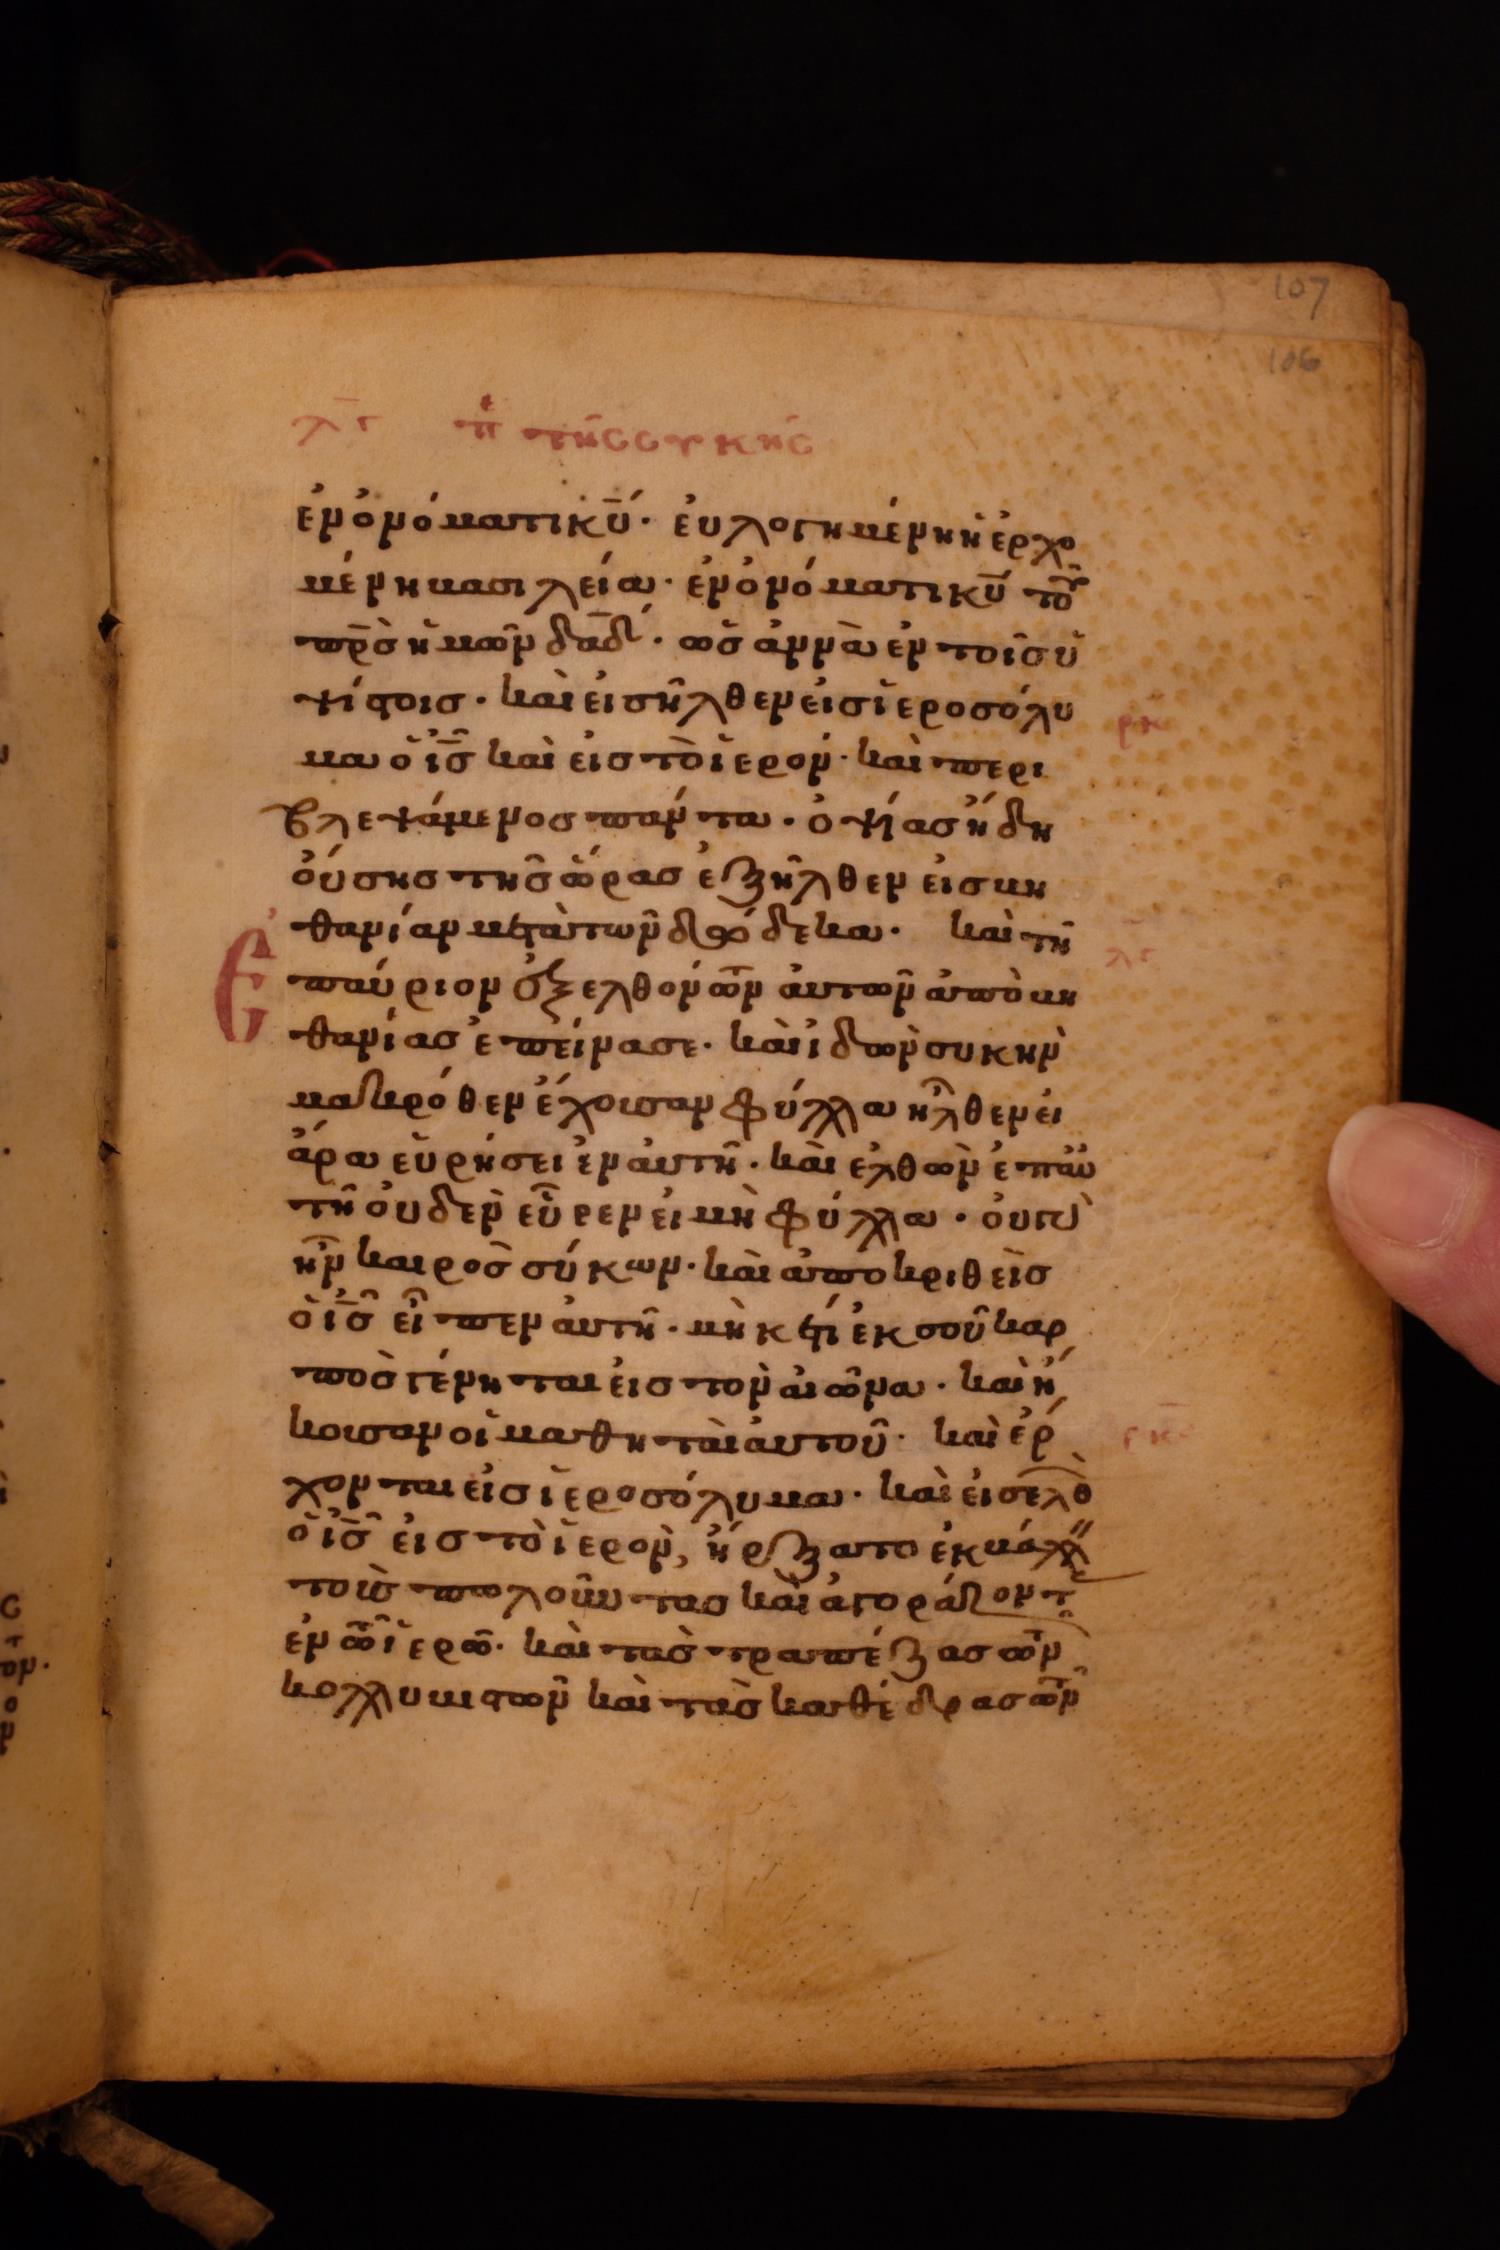 107
106
λγ πε τῆς συκῆς
ἐν ὀνόματι κ̅υ̅· ἐυλογημένη ἡ ἐρχο
μένη βασιλεία· ἐν ὀνόματι κ̅υ̅ τοῦ
π̅ρ̅ς ἡμῶν δ̅α̅δ̅· ὡσἀννὰ ἐν τοῖς ὑ
ψίστοις· καὶ εἰσῆλθεν εἰς ἱεροσόλυ
μα ὁ ι̅ς̅ καὶ εἰς τὸ ἱερόν· καὶ περι
βλεψάμενος πάντα· ὀψίας ἤδη
οὔσης τῆς ὥρας ἐξῆλθεν εἰς βη
θανίαν μετὰ τῶν δώδεκα· καὶ τῆ
Ἐπαύριον ἐξελθόντων ἀυτῶν ἀπὸ βη
θανίας ἐπείνασε· καὶ ἰδὼν συκὴν
μακρόθεν ἔχουσαν φύλλα ἦλθεν εἰ
ἄρα εὑρήσει ἐν ἀυτῆ· καὶ ἐλθὼν ἐπ ἀυ
τῆ ὀυδὲν εὗρεν εἰ μὴ φύλλα· ὀυ γὰρ
ἦν καιρὸς σύκων· καὶ ἀποκριθεὶς
ὁ ι̅ς̅ εἶπεν ἀυτῆ· μηκέτι ἐκ σοῦ καρ
πὸς γένηται εἰς τὸν αἰῶνα· καὶ ἤ
κουσαν οἱ μαθηταὶ ἀυτοῦ· καὶ ἔρ
χονται εἰς ἱεροσόλυμα· καὶ εἰσελθὼν
ὁ ι̅ς̅ εἰς τὸ ἱερὸν, ἤρξατο ἐκβάλλειν
τοὺς πωλοῦντας καὶ ἀγοράζοντας
ἐν τῶ ἱερῶ· καὶ τὰς τραπέζας τῶν
κολλυβιστῶν καὶ τὰς καθέδρας τῶν
ρκ
λγ